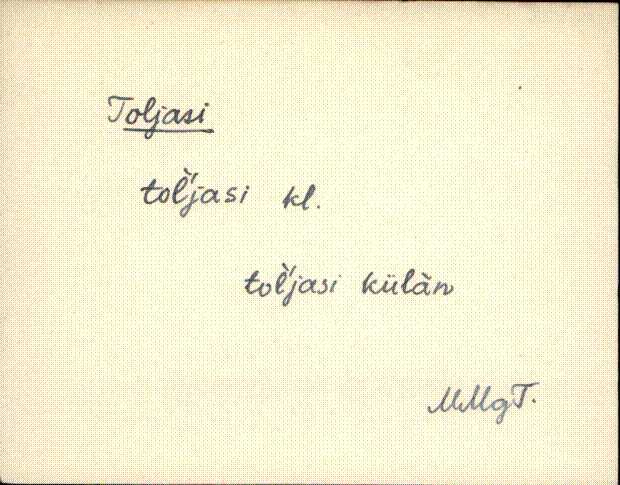 Toljasi
tol̀'jasi kl.
tol̀'jasi külàn
MMgT.